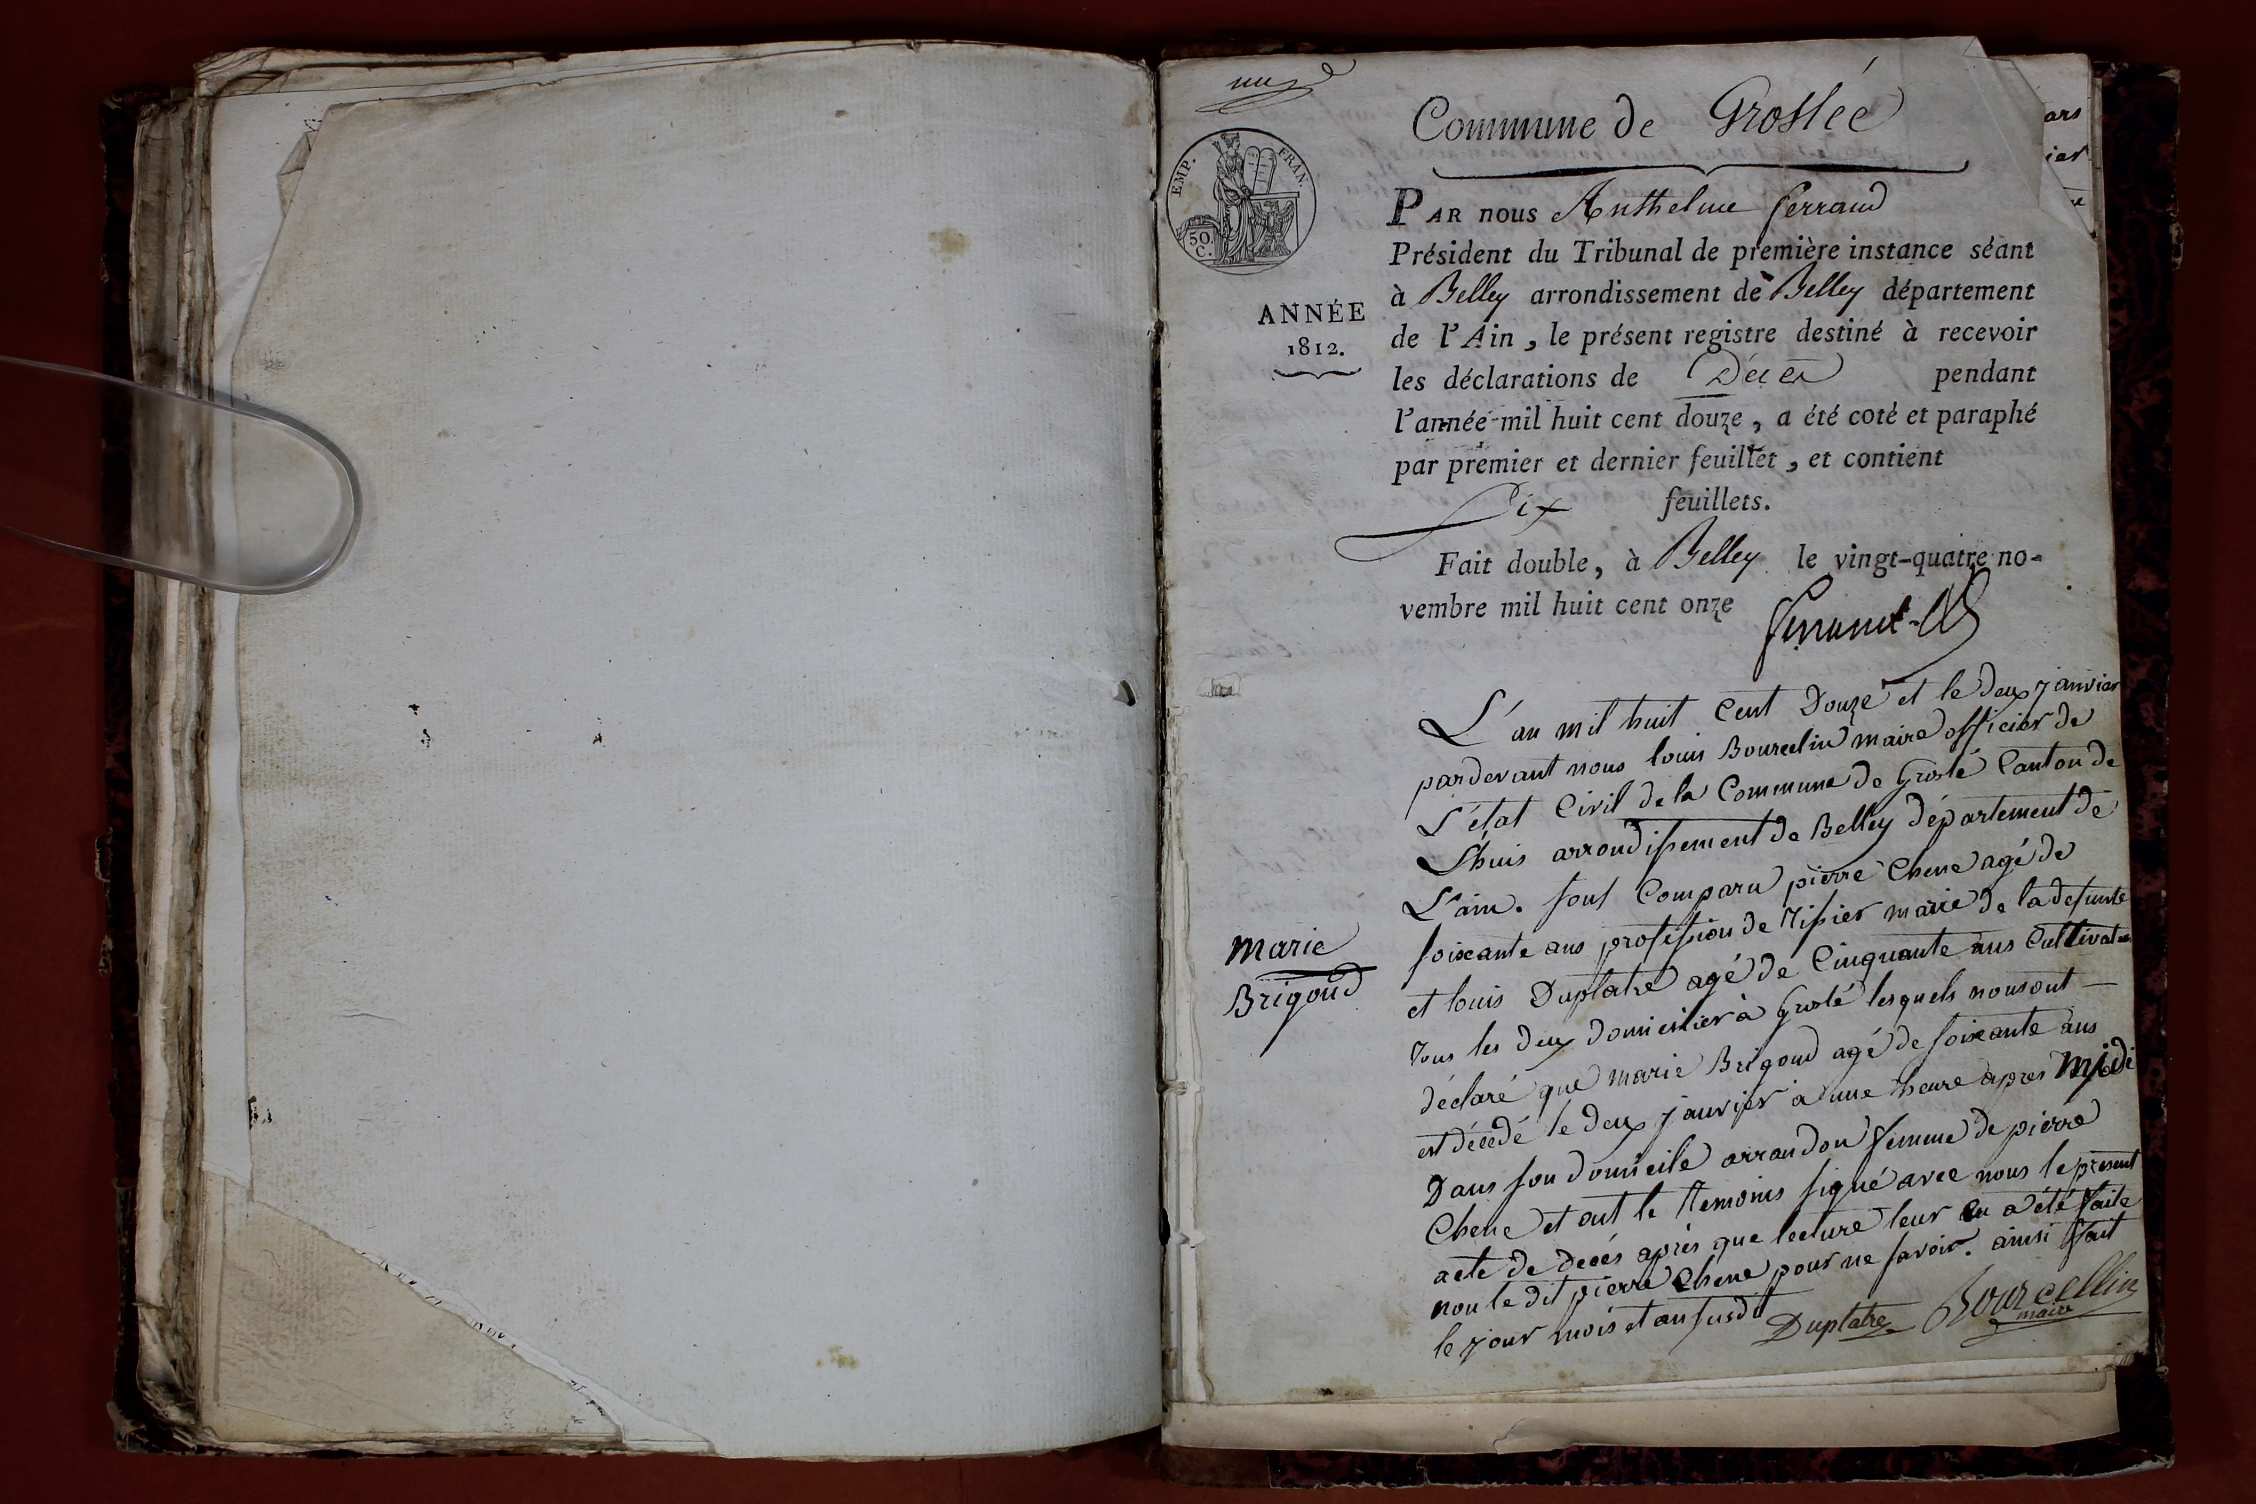 une
Commune de Groslée
EMP. FRAN.
50.
C.
ANNÉE
1812.
PAR nous Anthelme ferrand
Président du Tribunal de première instance séant
à Belley arrondissement de Belley département
de l'Ain, le présent registre destiné à recevoir
les déclarations de Décés pendant
l'année mil huit cent douze, a été coté et paraphé
par premier et dernier feuillet, et contient
Six feuillets.
Fait double, à Belley le vingt-quatre no-
vembre mil huit cent onze
ferrand
L'an mil huit Cent Douze et le deux janvier
pardevant nous louis Bourcelin maire officier de
L'état Civil de la Commune de Groslé Canton de
Lhuis arrondissement de Belley département de
L'ain. sont Comparu pierre Chene agé de
soixante ans profession de Tissier marie de la defunte
et louis Duplatre agé de Cinquante ans Cultivateur
tous les deux domicilier à Groslé lesquels nous ont —
déclaré que marie Brigoud agé de soixante ans
est décédé le deux janvier à une heure apres Midi
Dans son domicile arrandon femme de pierre
Chene et ont le temoins signé avec nous le present
acte de decés après que lecture leur en a été faite
non le dit pierre Chene pour ne savoir. ainsi fait
le jour mois et an susdit
Duplatre Bourcellin
maire
marie
Brigoud
ars
ier